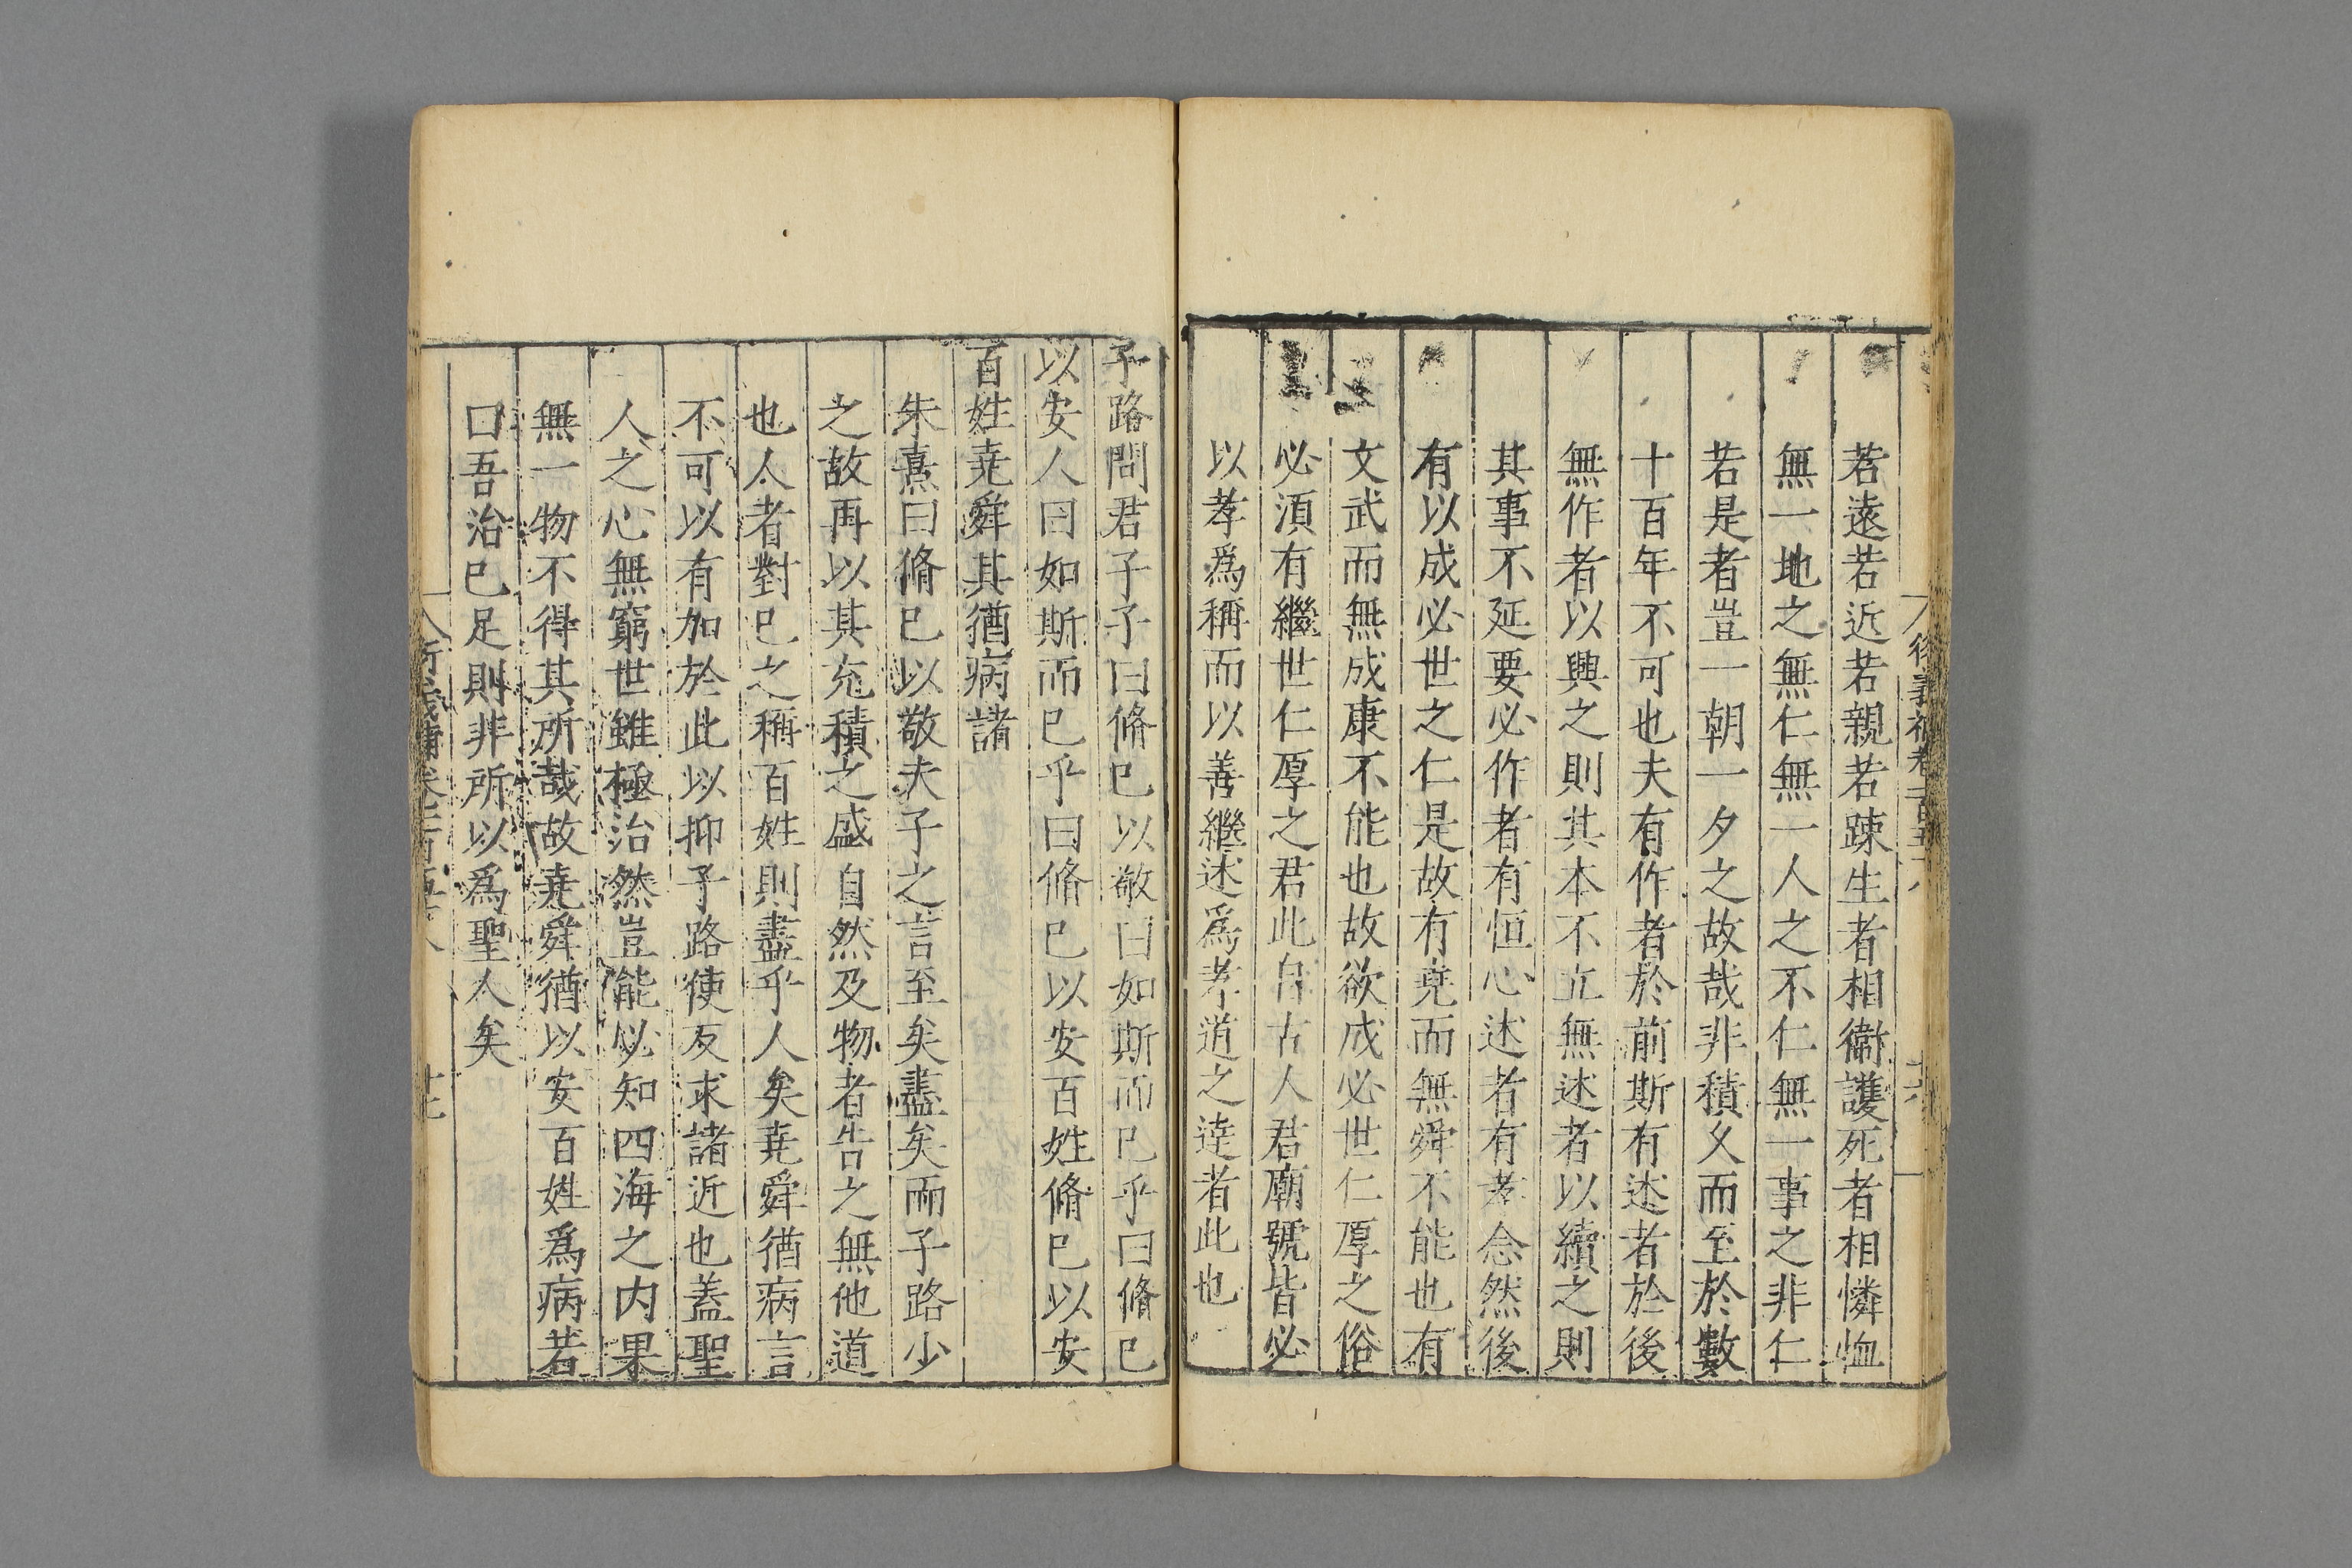 若遠若近若親若踈生者相衞護死者相憐恤
無一地之無仁無一人之不仁無一事之非仁
若是者豈一朝一夕之故哉非積久而至於數
十百年不可也夫有作者於前斯有述者於後
無作者以興之則其本不立無述者以續之則
其事不延要必作者有恒心述者有孝念然後
有以成必世之仁是故有堯而無舜不能也有
文武而無成康不能也故欲成必世仁厚之俗
必湏有繼世仁厚之君此自古人君廟號皆必
以孝爲稱而以善繼述爲孝道之達者此也
子路問君子子曰脩已以敬曰如斯而已乎曰脩已
以安人曰如斯而已乎曰脩已以安百姓脩已以安
百姓堯舜其猶病諸
朱熹曰脩已以敬夫子之言至矣盡矣而子路少
之故再以其充積之盛自然及物者告之無他道
也人者對已之稱百姓則盡乎人矣堯舜猶病言
不可以有加於此以抑子路使反求諸近也蓋聖
人之心無窮世雖極治然豈能必知四海之内果
無一物不得其所哉故堯舜猶以安百姓爲病若
曰吾治已足則非所以爲聖人矣